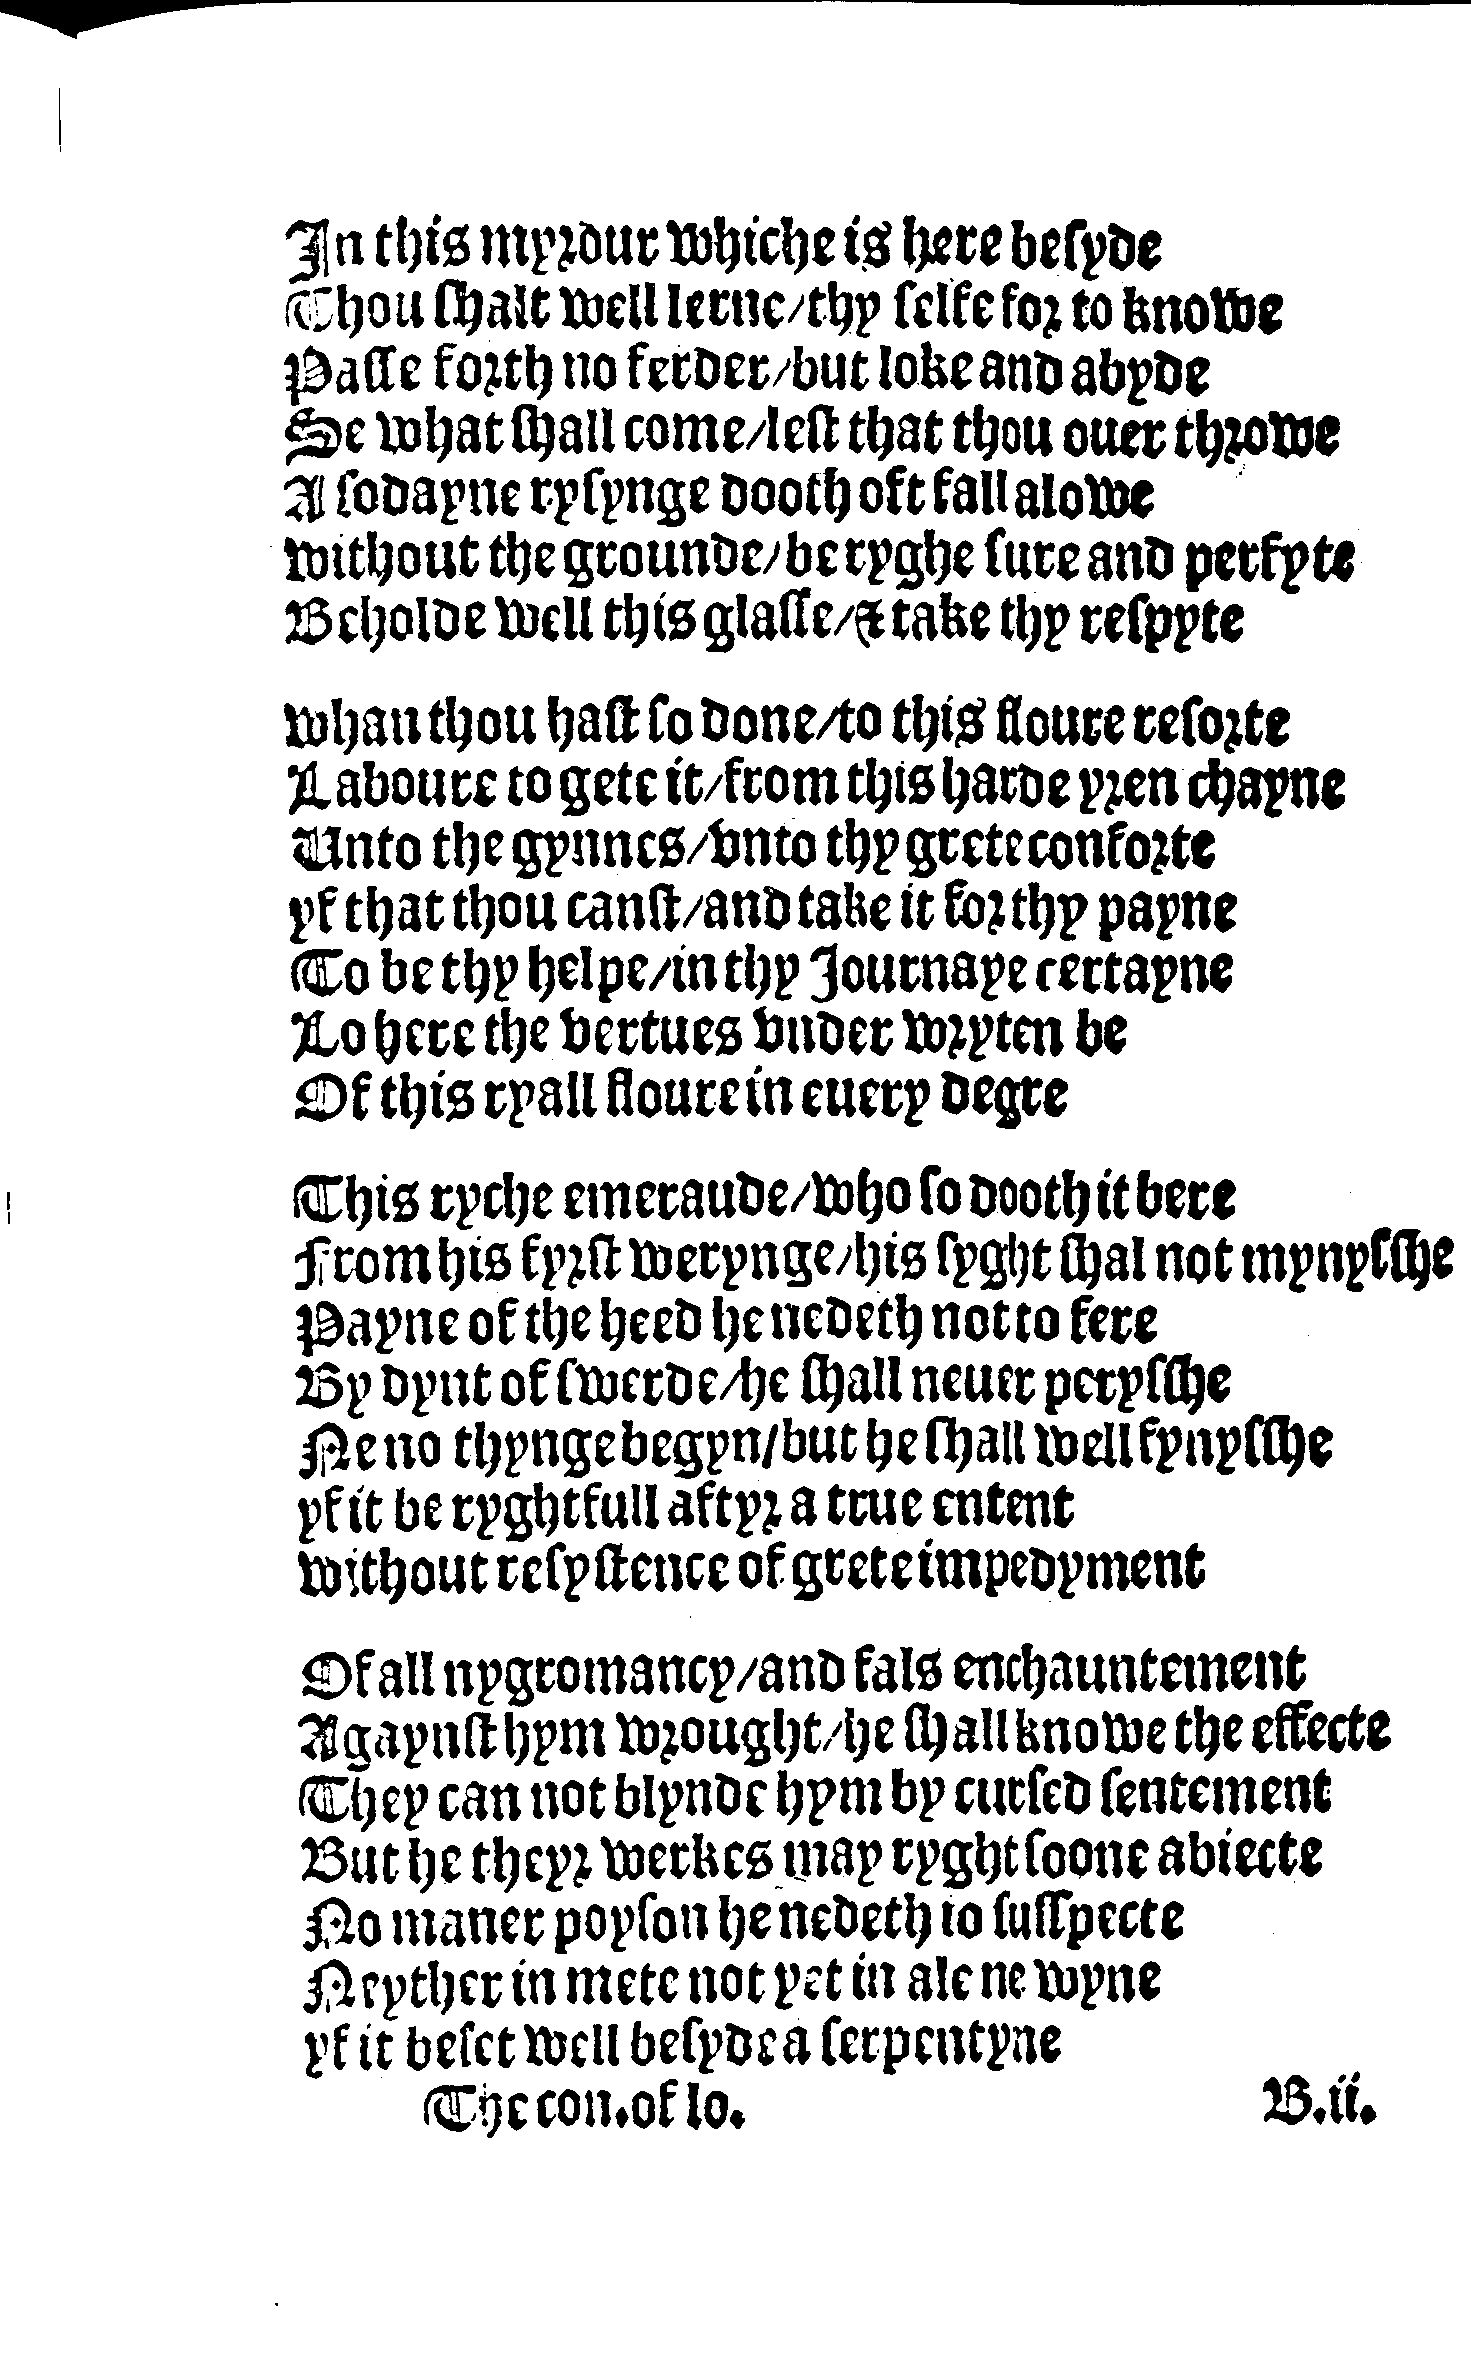 In this myꝛdur whiche is here beſyde
Thou ſhalt well lerne/thy ſelfe foꝛ to knowe
Paſſe foꝛth no ferder/but loke and abyde
Se what ſhall come/leſt that thou ouer thꝛowe
A ſodayne ryſynge dooth oft fall alowe
without the grounde/be ryghe ſure and perfyte
Beholde well this glaſſe/& take thy reſpyte
whan thou haſt ſo done/to this floure reſoꝛte
Laboure to gete it/from this harde yꝛen chayne
Unto the gynnes/vnto thy grete confoꝛte
yf that thou canſt/and take it foꝛ thy payne
To be thy helpe/in thy Journaye certayne
Lo here the vertues vnder wꝛyten be
Of this ryall floure in euery degre
This ryche emeraude/who ſo dooth it bere
From his fyꝛſt werynge/his ſyght ſhal not mynyſſhe
Payne of the heed he nedeth not to fere
By dynt of ſwerde/he ſhall neuer peryſſhe
Ne no thynge begyn/but he ſhall well fynyſſhe
yf it be ryghtfull aftyꝛ a true entent
without reſyſtence of grete impedyment
Of all nygromancy/and fals enchauntement
Agaynſt hym wꝛought/he ſhall knowe the effecte
They can not blynde hym by curſed ſentement
But he theyꝛ werkes may ryght ſoone abiecte
No maner poyſon he nedeth to ſuſſpecte
Neyther in mete not yet in ale ne wyne
yf it beſet well beſyde a ſerpentyne
The con.of lo. B.ii.